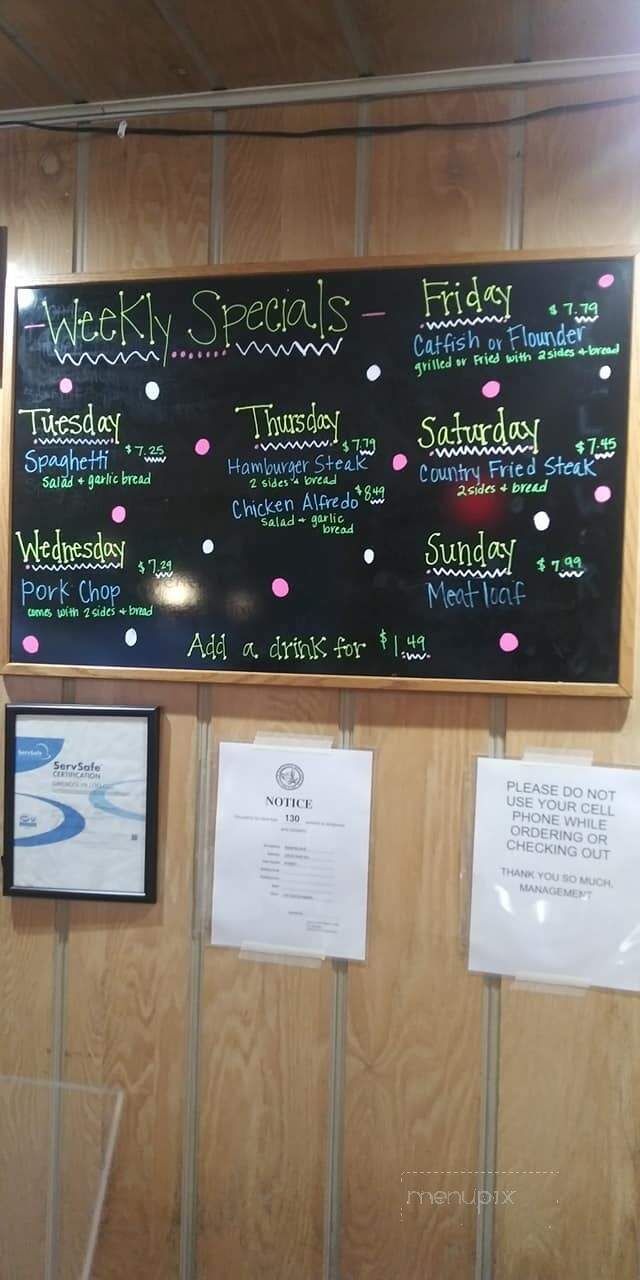 Weekly Specials
Tuesday
$7.25
Spaghetti
salad + garlic bread
Wednesday
$7.29
Pork Chop
comes with 2 sides + bread
Thursday
$7.79
Hamburger Steak
2 sides + bread
$8.49
Chicken Alfredo
salad + garlic
bread
Friday
$7.79
Catfish or Flounder
grilled or Fried with 2 sides + bread
Saturday
$7.45
Country Fried Steak
2 sides + bread
Sunday
$7.99
Meatloaf
Add a drink for $1.49
ServSafe
ServSafe
CERTIFICATION
NOTICE
130
PLEASE DO NOT
USE YOUR CELL
PHONE WHILE
ORDERING OR
CHECKING OUT
THANK YOU SO MUCH,
MANAGEMENT
menupix